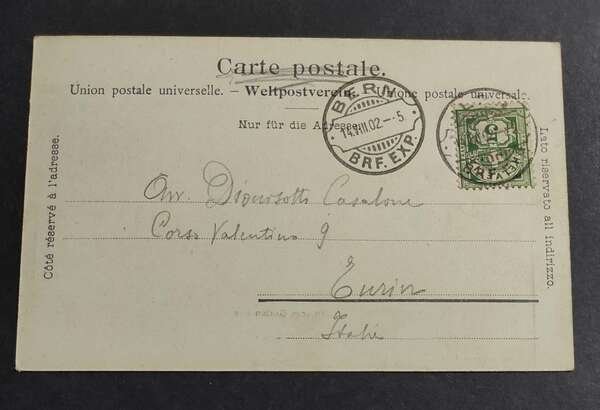 Carte postale.
Union postale universelle. — Weltpostverein. — Unione postale universale.
Nur für die Adresse.
BERN
14.VIII.02--5
BRF. EXP.
5
Côté réservé à l'adresse.
Lato riservato all indirizzo.
Casalone
Corso Valentino 9
Turin
Italie